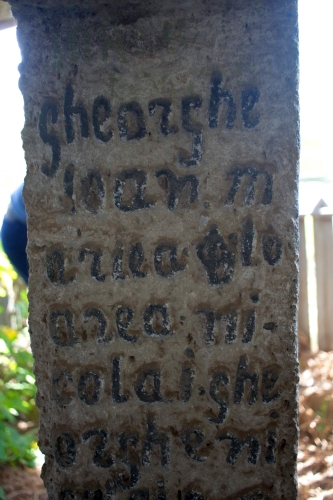 gheorghe
ioan. m
ariea
anea ni-
colai. ghe
orghe ni